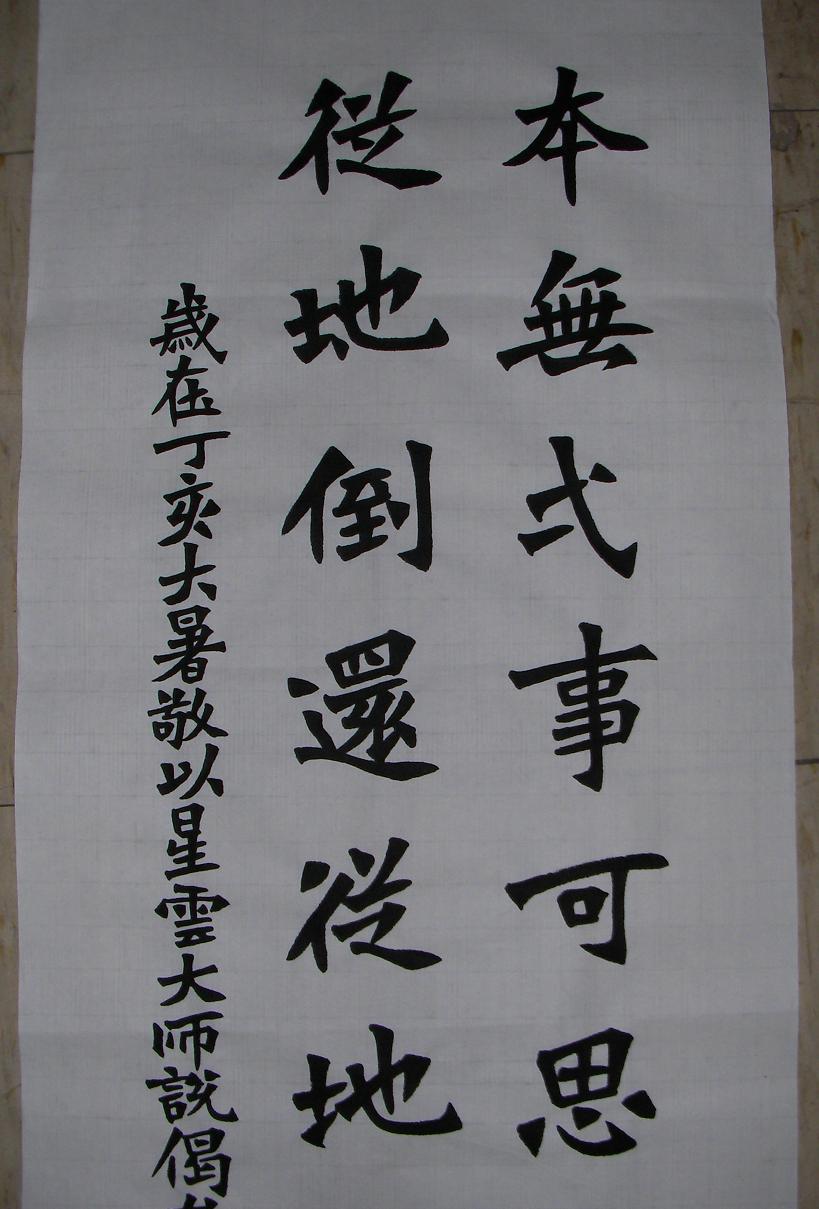 本無弍事可思
從地倒還從地
歲在丁亥大暑敬以星雲大師説偈